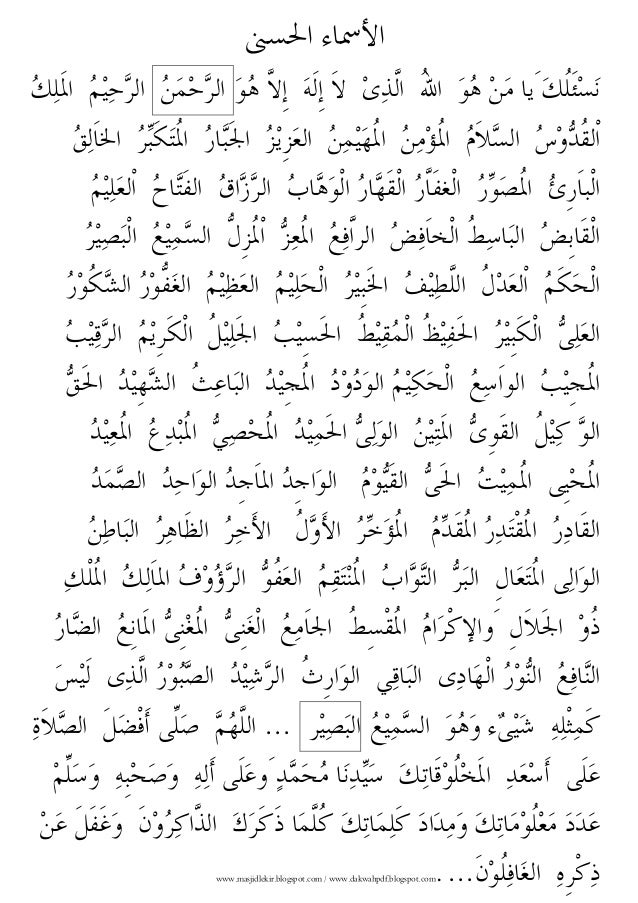 الأسماء الحسنى
نَسْئَلُكَ يا مَنْ هُوَ اللهُ الَّذِىْ لاَ إِلَهَ إِلاَّ هُوَ الرَّحْمَنُ الرَّحِيْمُ الَملِكُ
اْلقُدُّوْسُ السَّلاَمُ الُمؤْمِنُ الُمهَيْمِنُ العَزِيْزُ الجَبَّارُ الُمتَكَبِّرُ الخَالِقُ
الْبَارِئُ الُمصَوِّرُ الْغفَاَّرُ الْقَهَّارُ الْوَهَّابُ الرَّزَّاقُ الفَتَّاحُ اْلعَلِيْمُ
الْقَابِضُ البَاسِطُ الْخاَفِضُ الراَّفِعُ الُمعِزُّ اْلُمزِلُّ السَّمِيْعُ الْبَصِيْرُ
الْحَكَمُ اْلعَدْلُ اللَّطِيْفُ الخَبِيْرُ الْحَلِيْمُ العَظِيْمُ الغَفُّوْرُ الشَّكُوْرُ
العَلِىُّ الْكَبِيْرُ الحَفِيْظُ الْمُقِيْطُ الحَسِيْبُ الجَلِيْلُ الْكَرِيْمُ الرَّقِيْبُ
الُمجِيْبُ الواَسِعُ الْحَكِيْمُ الوَدُوْدُ الُمجِيْدُ البَاعِثُ الشَّهِيْدُ الحَقُّ
الوَّكِيْلُ القَوِىُّ الَمتِيْنُ الوَلِىُّ الحَمِيْدُ الُمحْصِيُّ الُمبْدِعُ الُمعِيْدُ
الُمحْيِى الُممِيْتُ الحَىُّ القَيُّوْمُ الوَاجِدُ الماَجِدُ الوَاحِدُ الصَّمَدُ
القَادِرُ الُمقْتَدِرُ الُمقَدِّمُ الُمؤَخِّرُ الأَوَّلُ الأَخِرُ الظَاهِرُ البَاطِنُ
الوَالِى الُمتَعَالِ البَرُّ التَّوَّابُ الُمنْتَقِمُ العَفُوُّ الرَّؤُوْفُ المَالِكُ الُملْكِ
ذُوْ الجَلاَلِ وَالإكْرَامُ الُمقْسِطُ الجاَمِعُ الْغَنِىُّ الُمغْنِىُّ الَمانِعُ الضَّارُ
النَّافِعُ النُّوْرُ الْهَادِى البَاقِي الوَارِثُ الرَّشِيْدُ الصَّبُوْرُ الَّذِى لَيْسَ
كَمِثْلِهِ شَيْىٌء وَهُوَ السَّمِيْعُ البَصِيْر ... اللَّهُمَّ صَلِّى أَفْضَلَ الصَّلاَةِ
عَلَى أَسْعَدِ الَمخْلُوْقَاتِكَ سَيِّدِنَا مُحَمَّدٍ وَعلَى أَلِهِ وَصَحْبِهِ وَسَلِّمْ
عَدَدَ مَعْلُوْمَاتِكَ وَمِدَادَ كَلِمَاتِكَ كُلَّمَا ذَكَرَكَ الذَّاكِرُوْنَ وَغَفَلَ عَنْ
ذِكْرِهِ الغَافِلُوْنَ....
www.masjidlekir.blogspot.com / www.dakwahpdf.blogspot.com